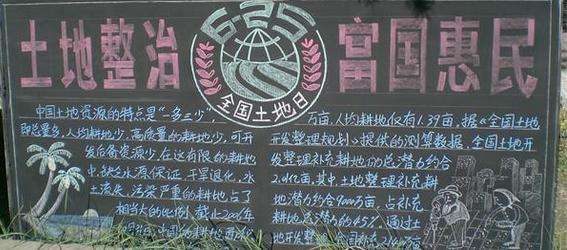 土地整治 富国惠民
6·25
全国土地日
中国土地资源的特点是“一多三少”,
即总量多,人均耕地少,高质量的耕地少,可开
发后备资源少。在这有限的耕地
中,缺乏水源保证、干旱退化、水
土流失、污染严重的耕地占了
相当大的比例。截止2006年
万亩,人均耕地仅有1.39亩。据《全国土地
开发整理规划》提供的测算数据,全国土地开
发整理补充耕地的总潜力约合
2.01亿亩,其中土地整理补充耕
地潜力约合9000万亩,占补充
耕地总潜力的45%。通过土
地开发整理